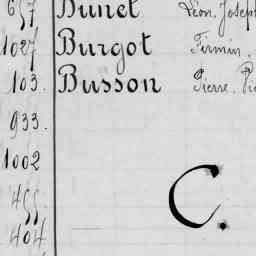 657. Bunel Léon, Joseph
1027 Burgot Firmin,
103. Busson Pierre,
933.
1002
C.
455
404